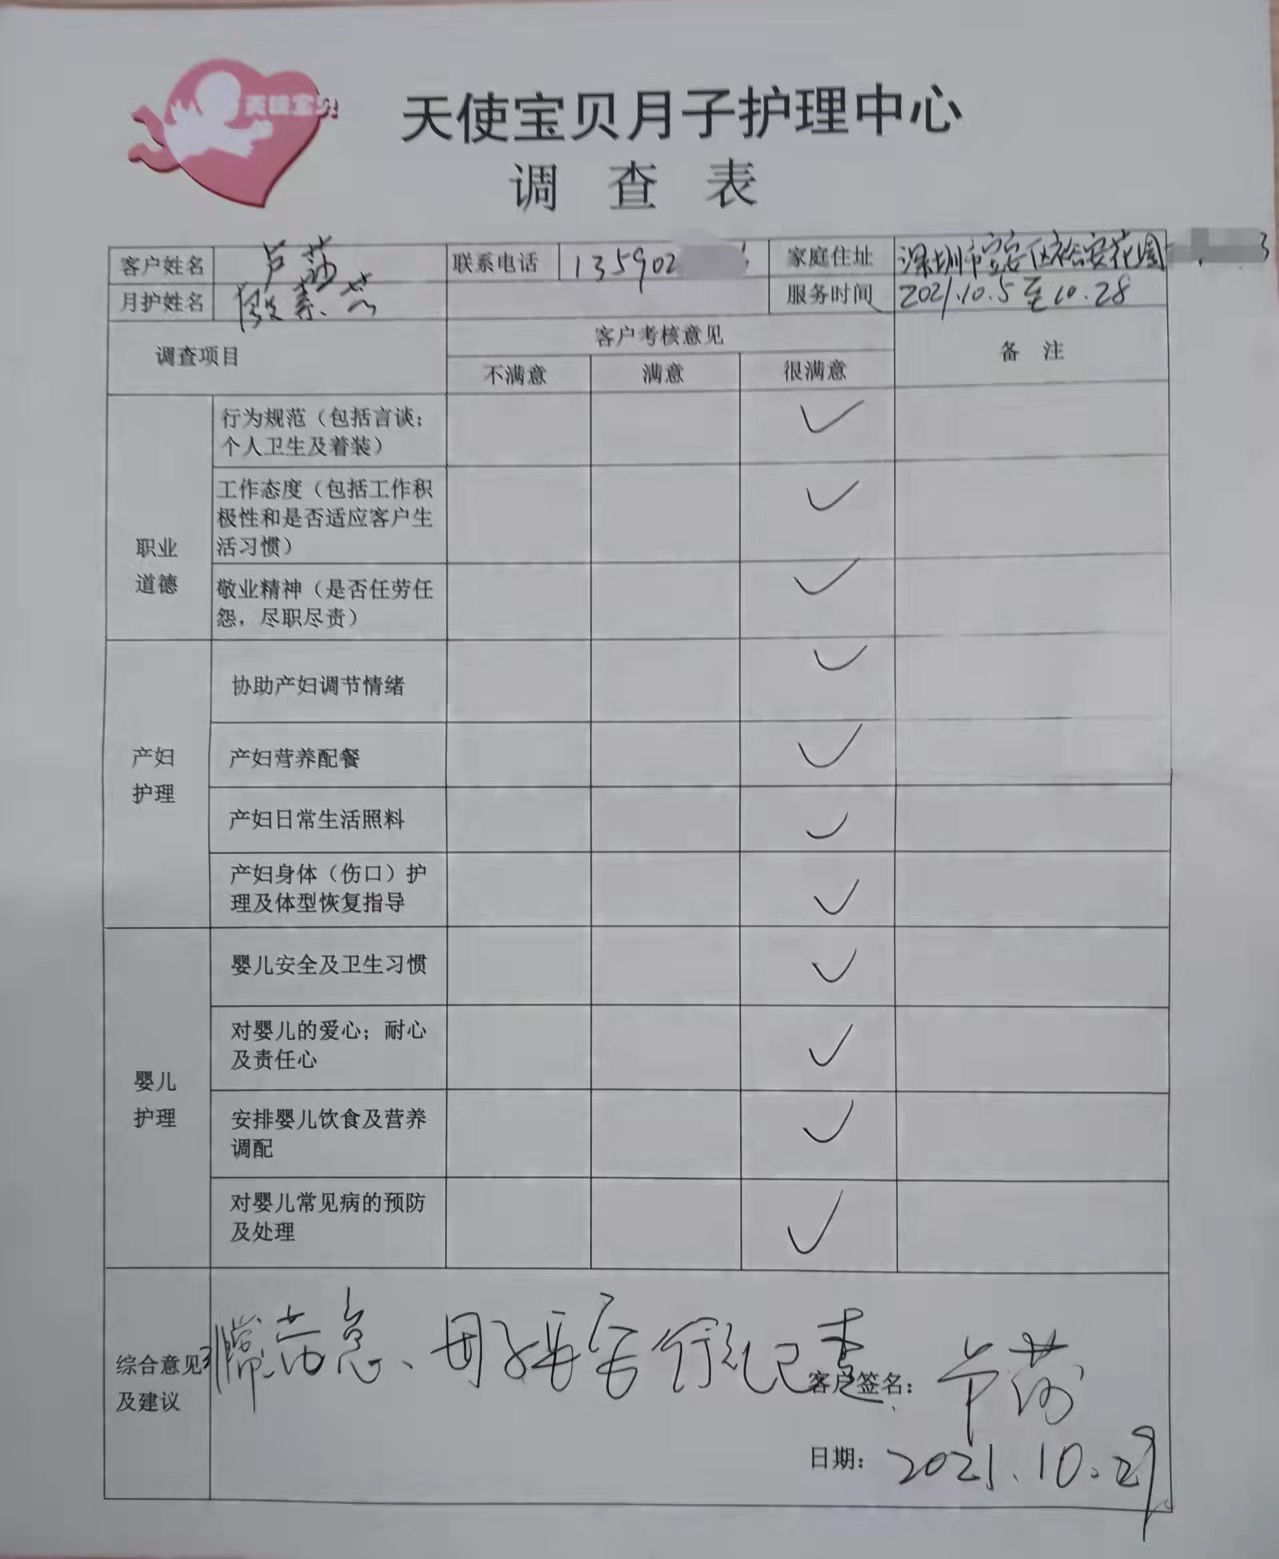 天使宝贝
天使宝贝月子护理中心
调 查 表
客户姓名 卢莎 联系电话 135902 家庭住址 深圳市宝安区裕安花园
月护姓名 段素芳 服务时间 2021.10.5至10.28
调查项目 客户考核意见 备 注
不满意 满意 很满意
职业
道德
行为规范（包括言谈；
个人卫生及着装）
工作态度（包括工作积
极性和是否适应客户生
活习惯）
敬业精神（是否任劳任
怨，尽职尽责）
产妇
护理
协助产妇调节情绪
产妇营养配餐
产妇日常生活照料
产妇身体（伤口）护
理及体型恢复指导
婴儿
护理
婴儿安全及卫生习惯
对婴儿的爱心；耐心
及责任心
安排婴儿饮食及营养
调配
对婴儿常见病的预防
及处理
综合意见
及建议
非常满意、
客户签名：
日期： 2021.10.29